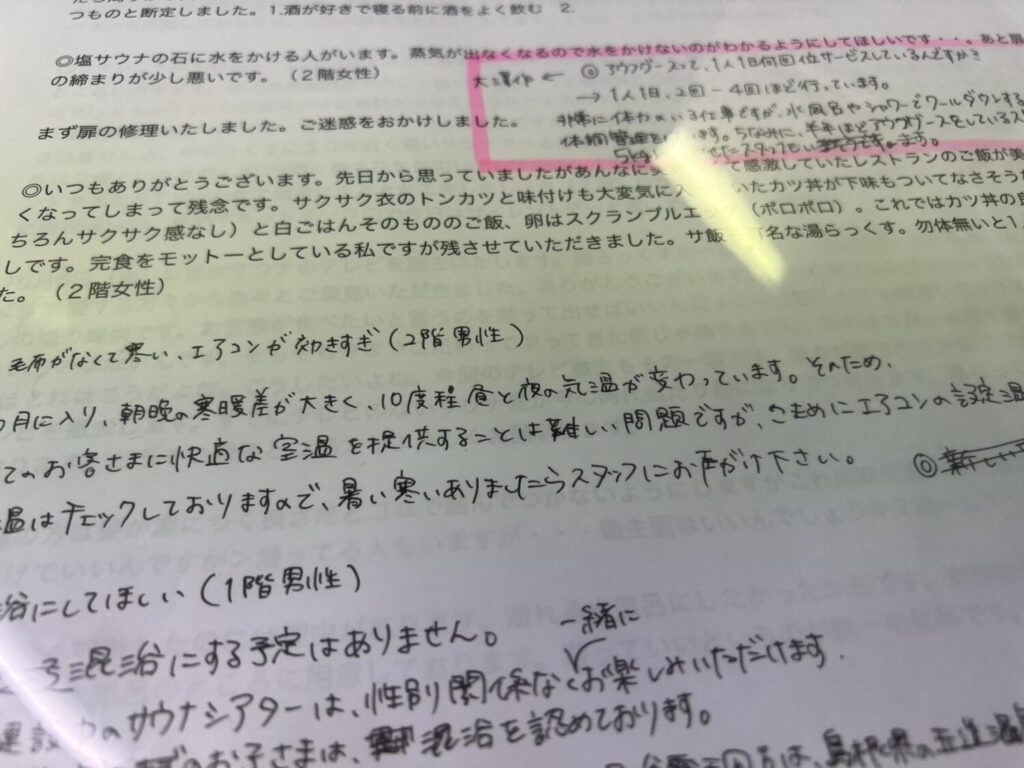 つものと断定しました。1.酒が好きで寝る前に酒をよく飲む 2.
◎塩サウナの石に水をかける人がいます。蒸気が出なくなるので水をかけないのがわかるようにしてほしいです・・。あと扉
の締まりが少し悪いです。（２階女性）
まず扉の修理いたしました。ご迷惑をおかけしました。
◎アウフグースって、1人1日何回位サービスしているんですか
→ 1人1日、2回－4回ほど行っています。
非常に体力 いる仕事ですが、水風呂やシャワーでクールダウンする
体調管理 います。ちなみに、半年ほどアウフグースをしているス
5kg スタッフも います。
◎いつもありがとうございます。先日から思っていましたがあんなに美 て感激していたレストランのご飯が美
くなってしまって残念です。サクサク衣のトンカツと味付けも大変気に入 いたカツ丼が下味もついてなさそう
ちろんサクサク感なし）と白ごはんそのもののご飯、卵はスクランブルエッグ（ポロポロ）。これではカツ丼の
しです。完食をモットーとしている私ですが残させていただきました。サ飯も有名な湯らっくす。勿体無いと1
た。（２階女性）
毛布がなくて寒い、エアコンが効きすぎ（2階男性）
月に入り、朝晩の寒暖差が大きく、10度程昼と夜の気温が変わっています。そのため、
てのお客さまに快適な室温を提供することは難しい問題ですが、こまめにエアコンの設定温
温はチェックしておりますので、暑い寒いありましたらスタッフにお声がけ下さい。
◎新しい
浴にしてほしい（1階男性）
混浴にする予定はありません。
一緒に
建設中のサウナシアターは、性別関係なくお楽しみいただけます.
のお子さまは、混浴を認めております。
は、島根県の玉造温